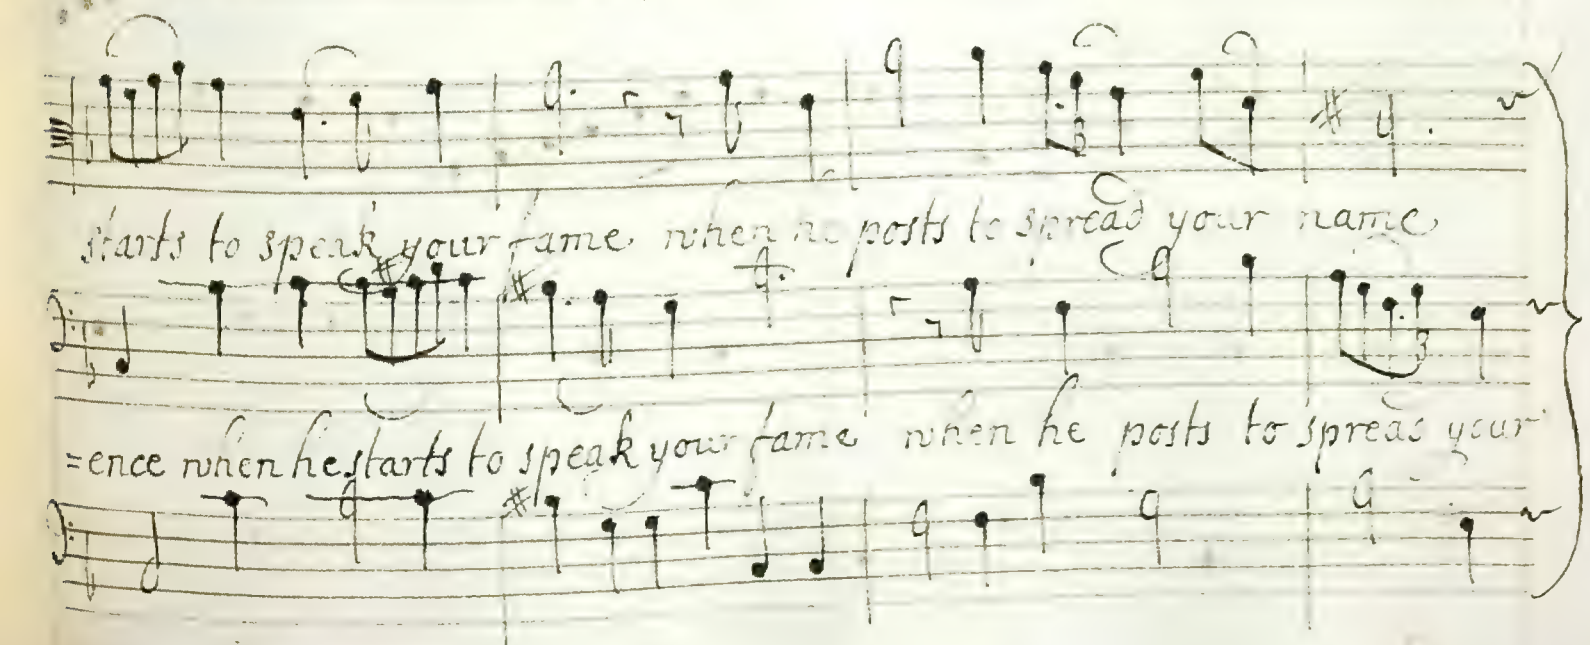 starts to speak your fame when he posts to spread your name
=ence when he starts to speak your fame when he posts to spread your